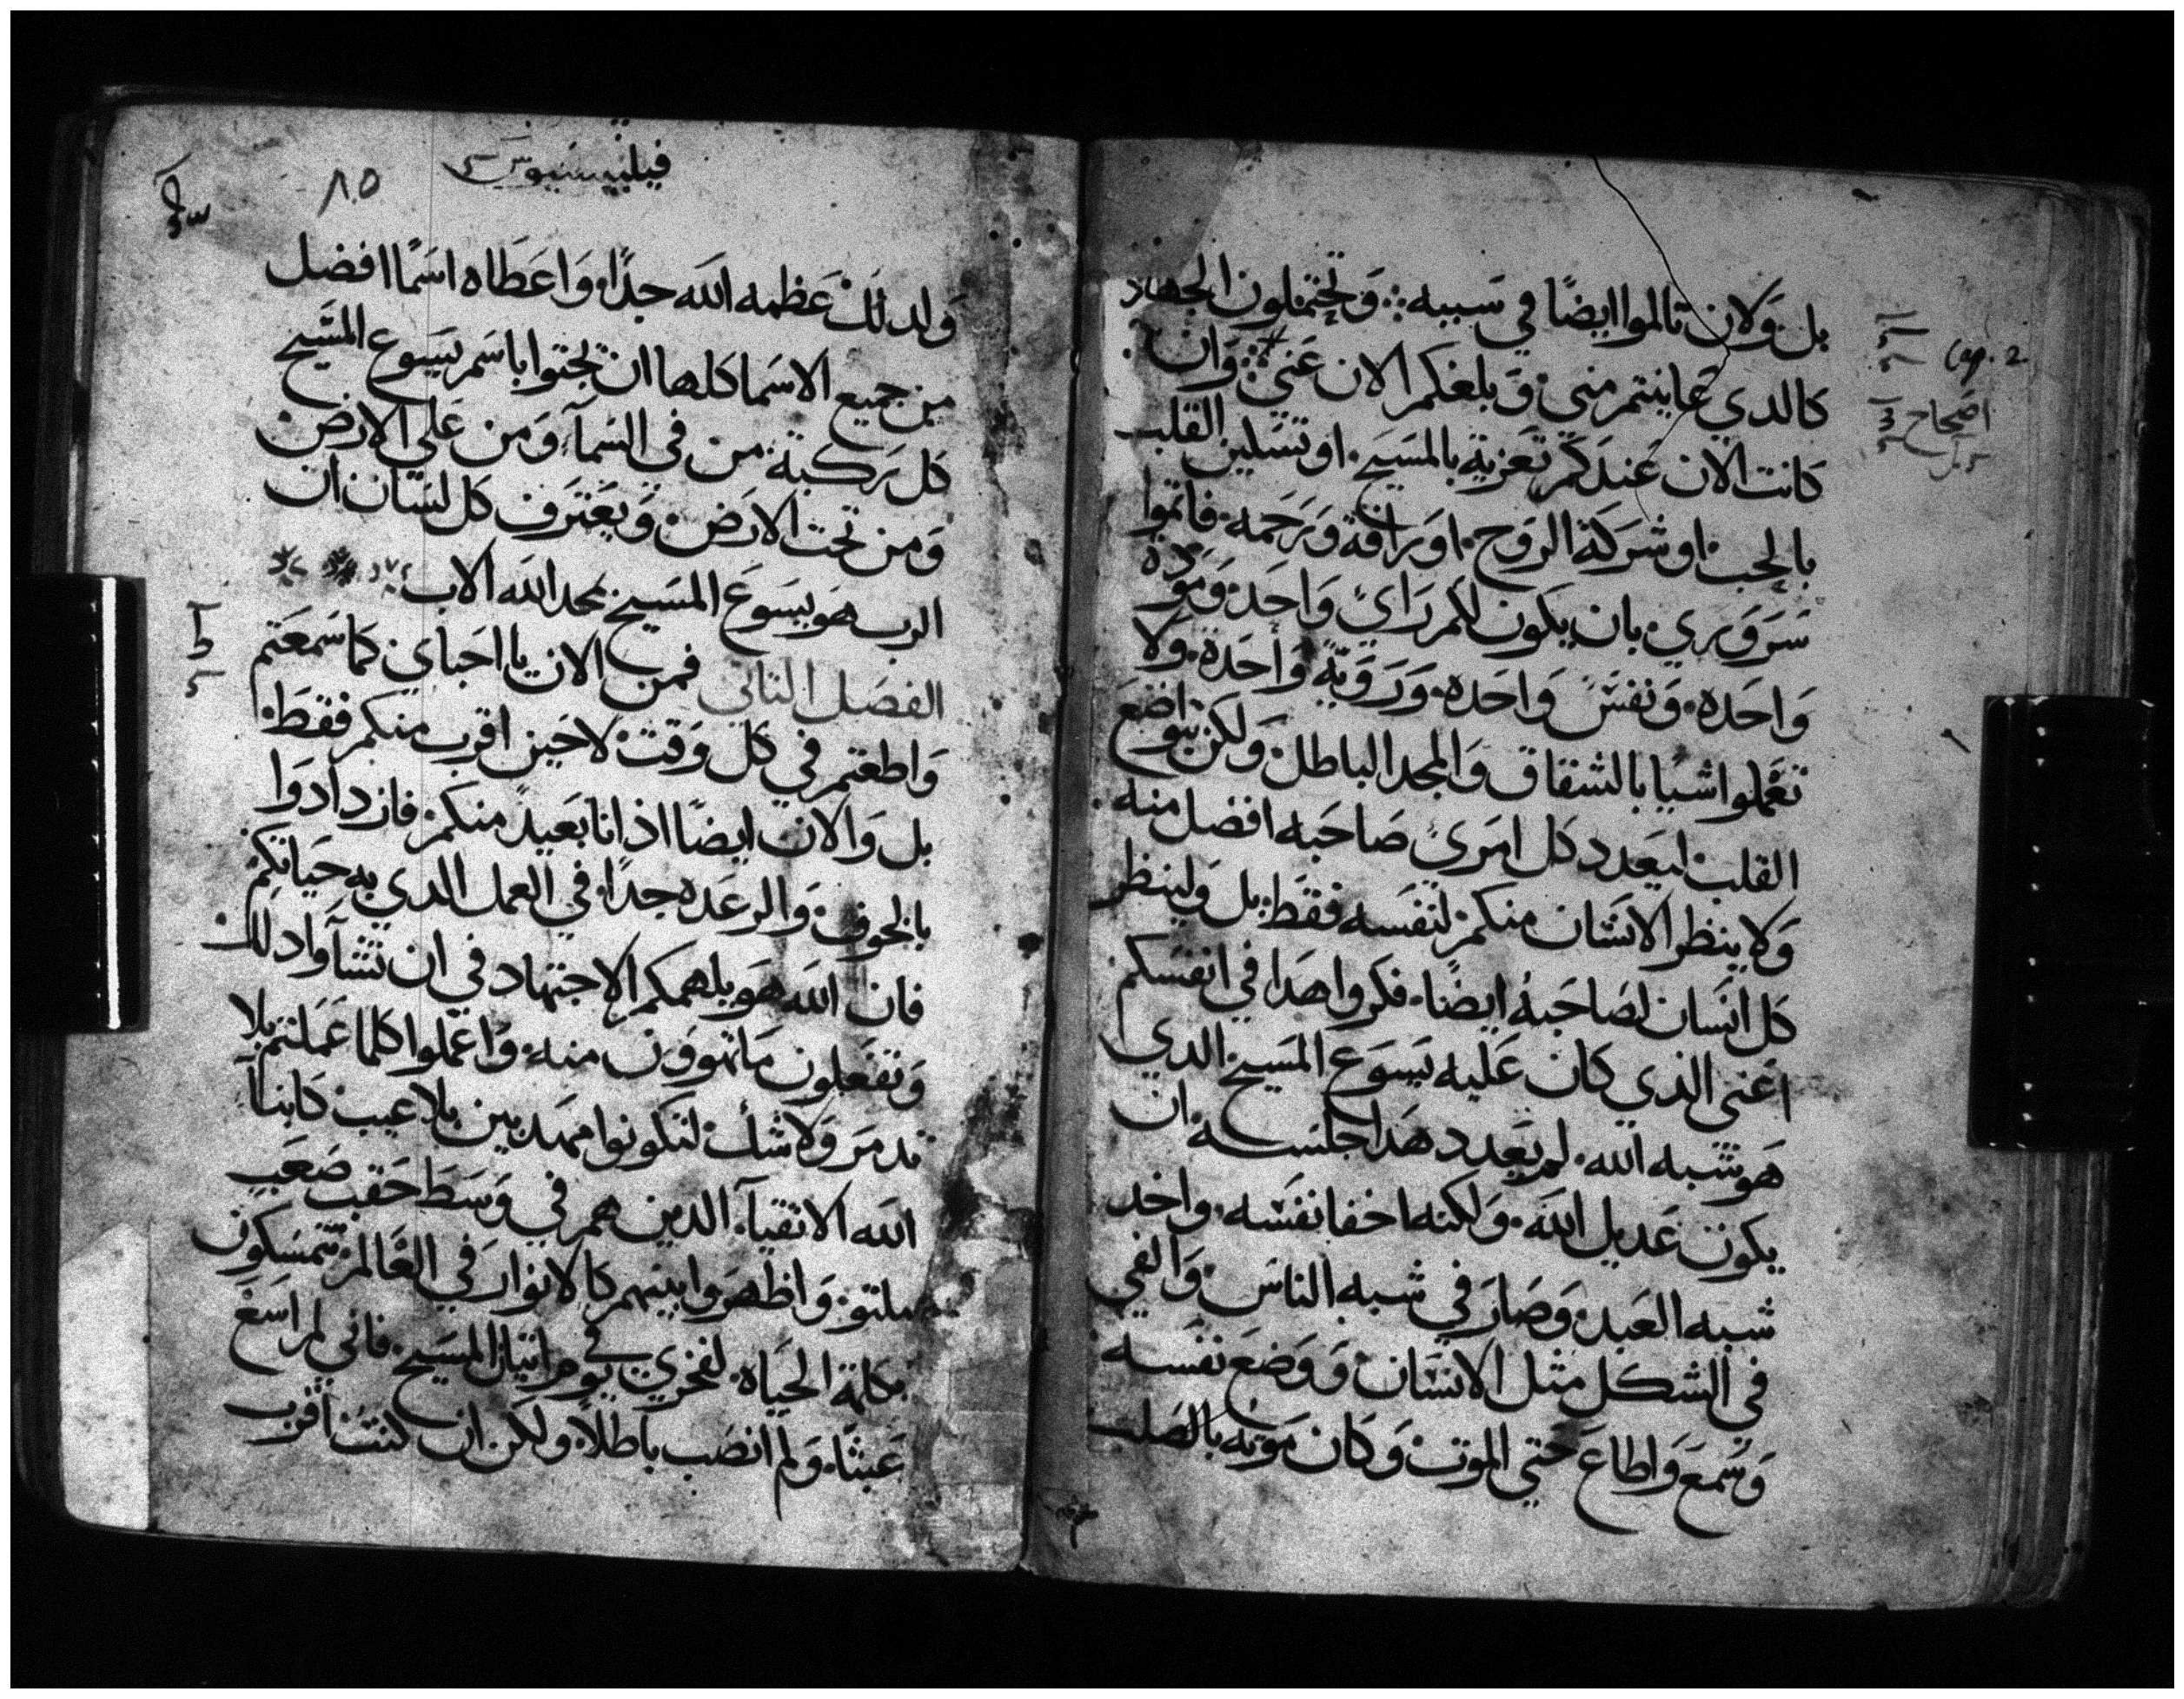 بل ولان تالموا ايضًا في سببه وتحتملون الجهاد
كالدي عاينتم مني وبلغكم الان عني وان
كانت الان عندكم تعزية بالمسيح او تسلين القلب
بالحب او شركة الروح او رافة ورحمه فاتموا
سروري بان يكون لكم راي واحد ومودة
واحده ونفس واحده وروية واحدة ولا
تعملوا شيا بالشقاق والمجد الباطل ولكن بتواضع
القلب ليعدد كل امرئ صاحبه افضل منه
ولا ينظر الانسان منكم لنفسه فقط بل ولينظر
كل انسان لصاحبه ايضًا فكروا هدا في انفسكم
اعني الذي كان عليه يسوع المسيح الدي
هو شبه الله لم يعدد هدا خلسه ان
يكون عديل الله ولكنه اخفا نفسه واخد
شبه العبد وصار في شبه الناس والفي
في الشكل مثل الانسان ووضع نفسه
وسمع واطاع حتي الموت وكان موته بالصلب
Cap. 2
اصحاح
فيليبسيوس
٨٥
ولدلك عظمه الله جدًا واعطاه اسمًا افضل
من جميع الاسما كلها ان تجتوا باسم يسوع المسيح
كل ركبة من في السمآ ومن علي الارض
ومن تحت الارض ويعترف كل لسان ان
الرب هو يسوع المسيح لمجد الله الاب
الفصل التاني فمن الان يا احباي كما سمعتم
واطعتم في كل وقت لا حين اقرب منكم فقط
بل والان ايضًا اذ انا بعيد منكم فازدادوا
بالخوف والرعده جدًا في العمل الدي به حياتكم
فان الله هو يلهمكم الاجتهاد في ان تشآوا دلك
وتفعلون ما تهوون منه واعملوا كلما عملتم بلا
تدمر ولا شك لتكونوا مهدبين بلا عيب كابنآ
الله الاتقيآ الدين هم في وسط حقب صعب
ملتو واظهروا بينهم كالانوار في العالم متمسكون
بكلمة الحياه لفخري في يوم اتيان المسيح فاني لم اسع
عبثًا ولم انصب باطلاً ولكن ان كنت اقرب